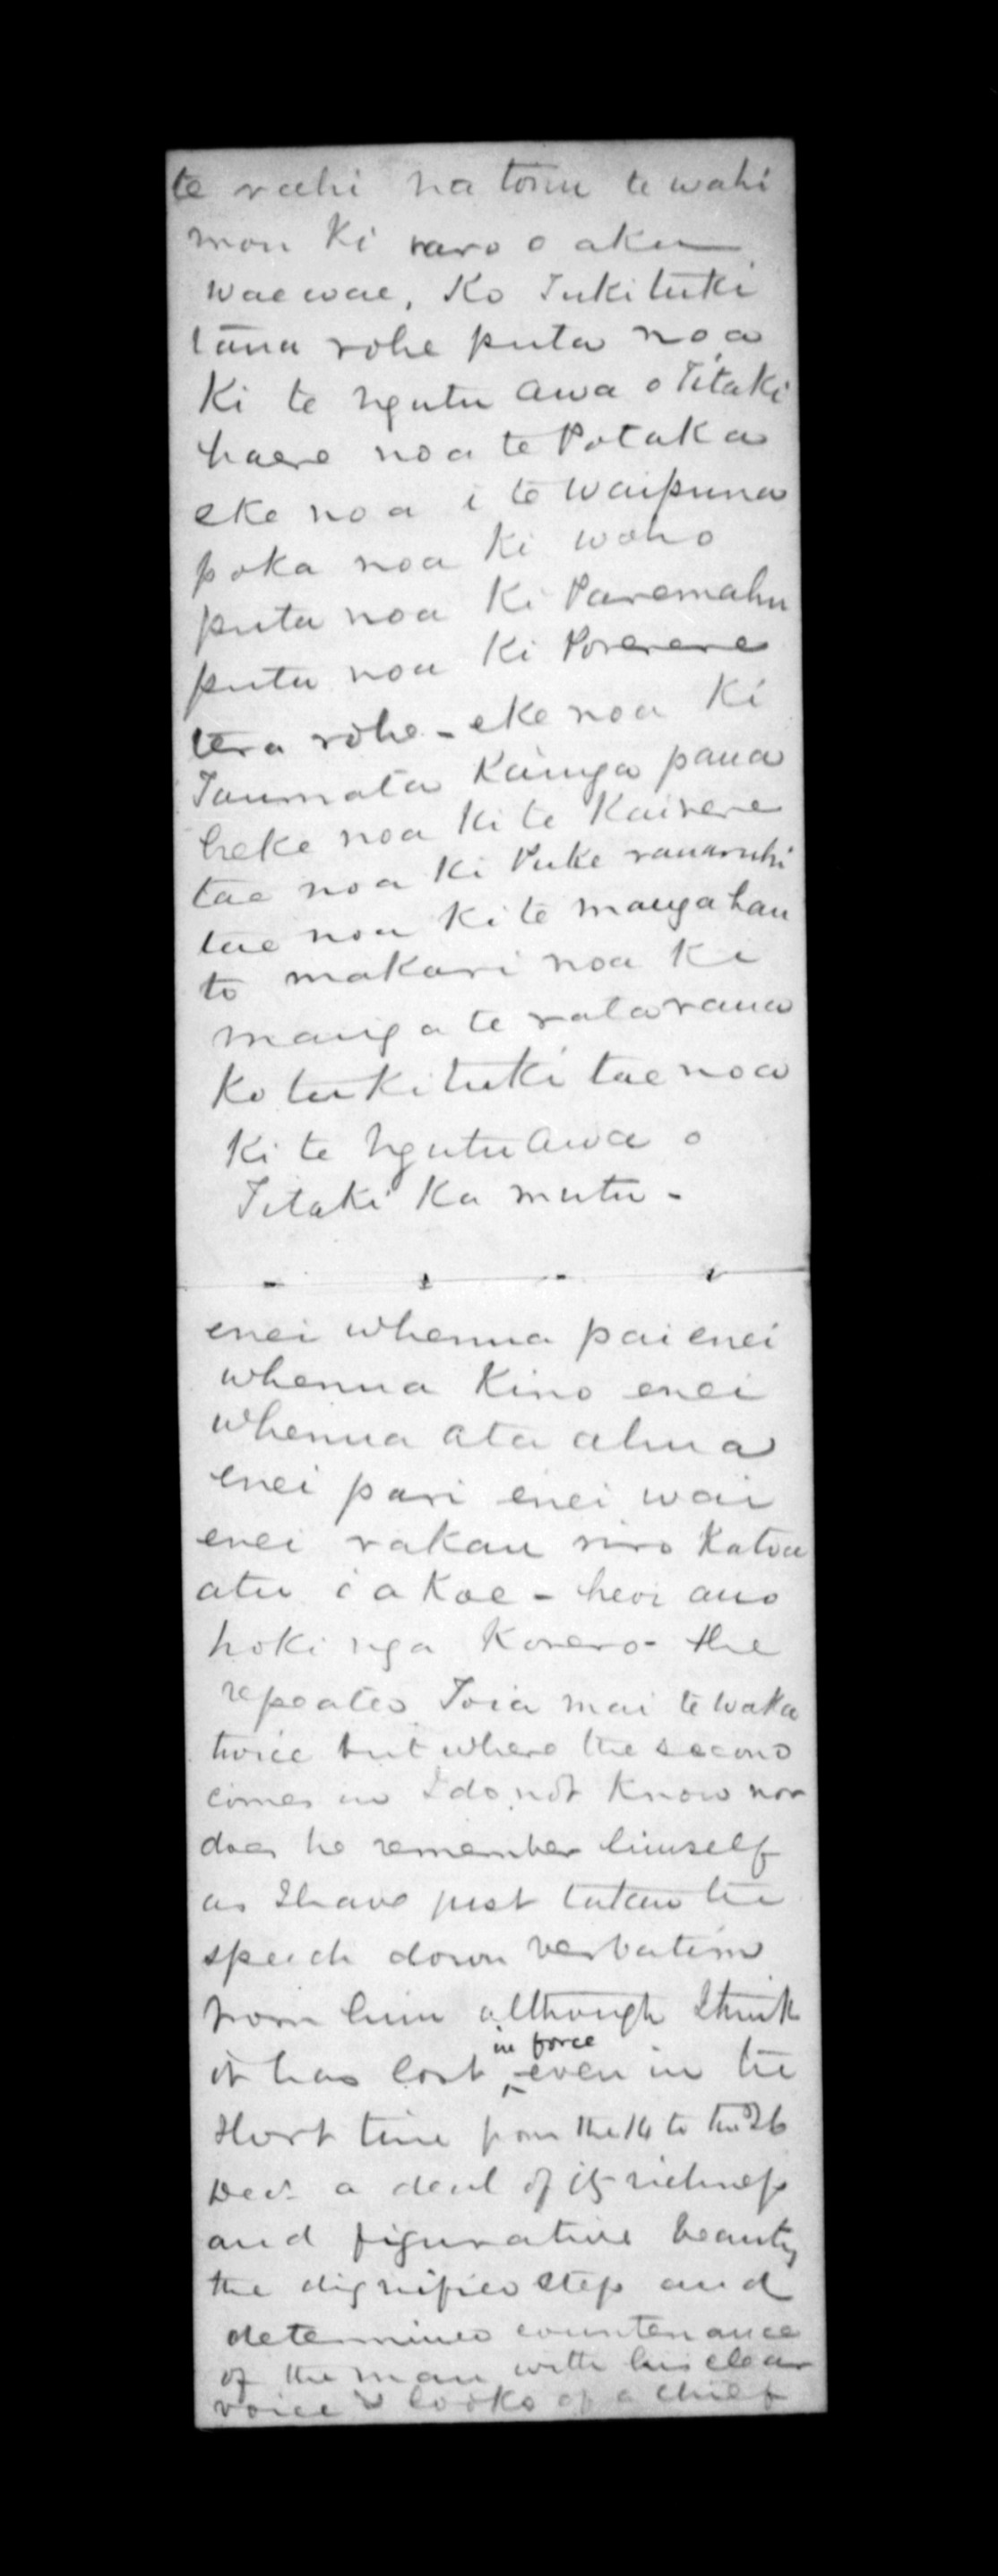 te rahi na tonu te wahi
mou Ki raro o aku
wae wae, Ko Tukituki
tana rohe puta noa
Ki te ngutu awa o Titaki
haere noa te Potaka
eke noa i te Waipuna
poka noa Ki waho
puta noa Ki Paremahu
puta noa Ki Porerere
tera rohe - eke noa Ki
Taumata Kainga paua
heke noa Ki te Kairere
tae noa Ki Puke rauaruhi
tae noa Ki te mangahau
to makari noa Ki
manga te ratarawa
Ko tukituki tae noa
Ki te Ngutu awa o
Titaki Ka mutu -
enei whenua pai enei
whenua Kino enei
whenua ata ahua
enei pari enei wai
enei rakau riro Katoa
atu i a Koe - heoi ano
hoki nga Korero - the
repeates Toia mai te waka
twice but where the second
comes in I do not Know nor
does he remember himself
as I have just taken the
speech down verbatim
from him although I think
it has lost in force even in the
short time from the 14 to the 26
Decr a deal of its richness
and figurative beauty
the dignified step and
determined countenance
of the man with his clear
voice & looks of a chief